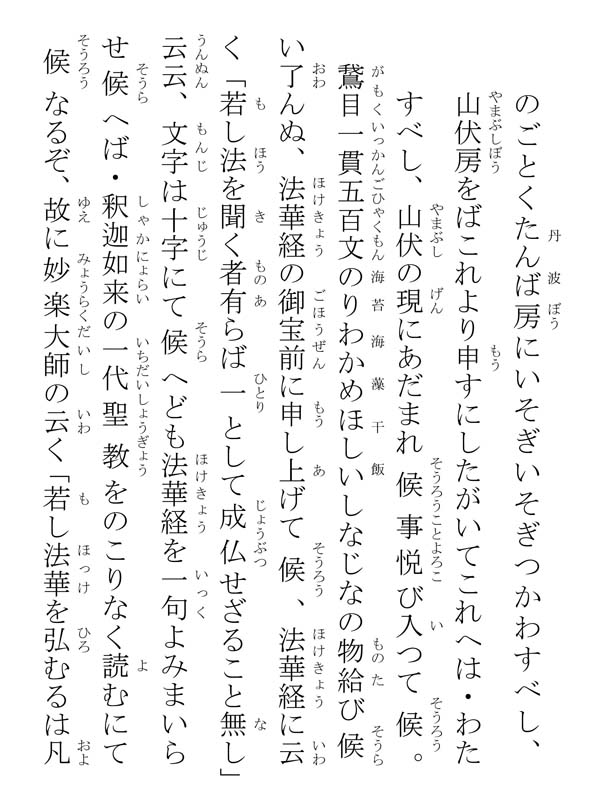 のごとくたんば房にいそぎいそぎつかわすべし、
山伏房をばこれより申すにしたがいてこれへは・わた
すべし、山伏の現にあだまれ候事悦び入つて候。
鵞目一貫五百文のりわかめほしいしなじなの物給び候
い了んぬ、法華経の御宝前に申し上げて候、法華経に云
く「若し法を聞く者有らば一として成仏せざること無し」
云云、文字は十字にて候へども法華経を一句よみまいら
せ候へば・釈迦如来の一代聖教をのこりなく読むにて
候なるぞ、故に妙楽大師の云く「若し法華を弘むるは凡